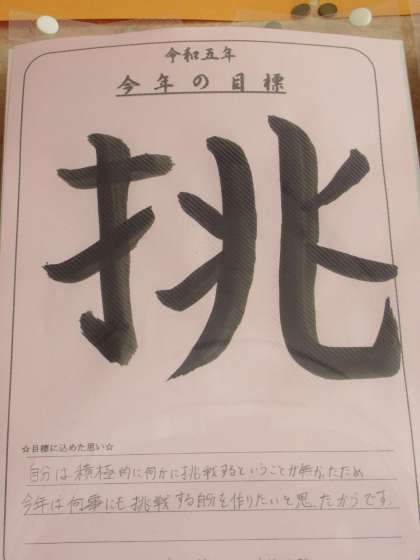 令和五年
今年の目標
挑
☆目標に込めた思い☆
自分は積極的に何かに挑戦するということが無かったため
今年は何事にも挑戦する自分を作りたいと思ったからです。